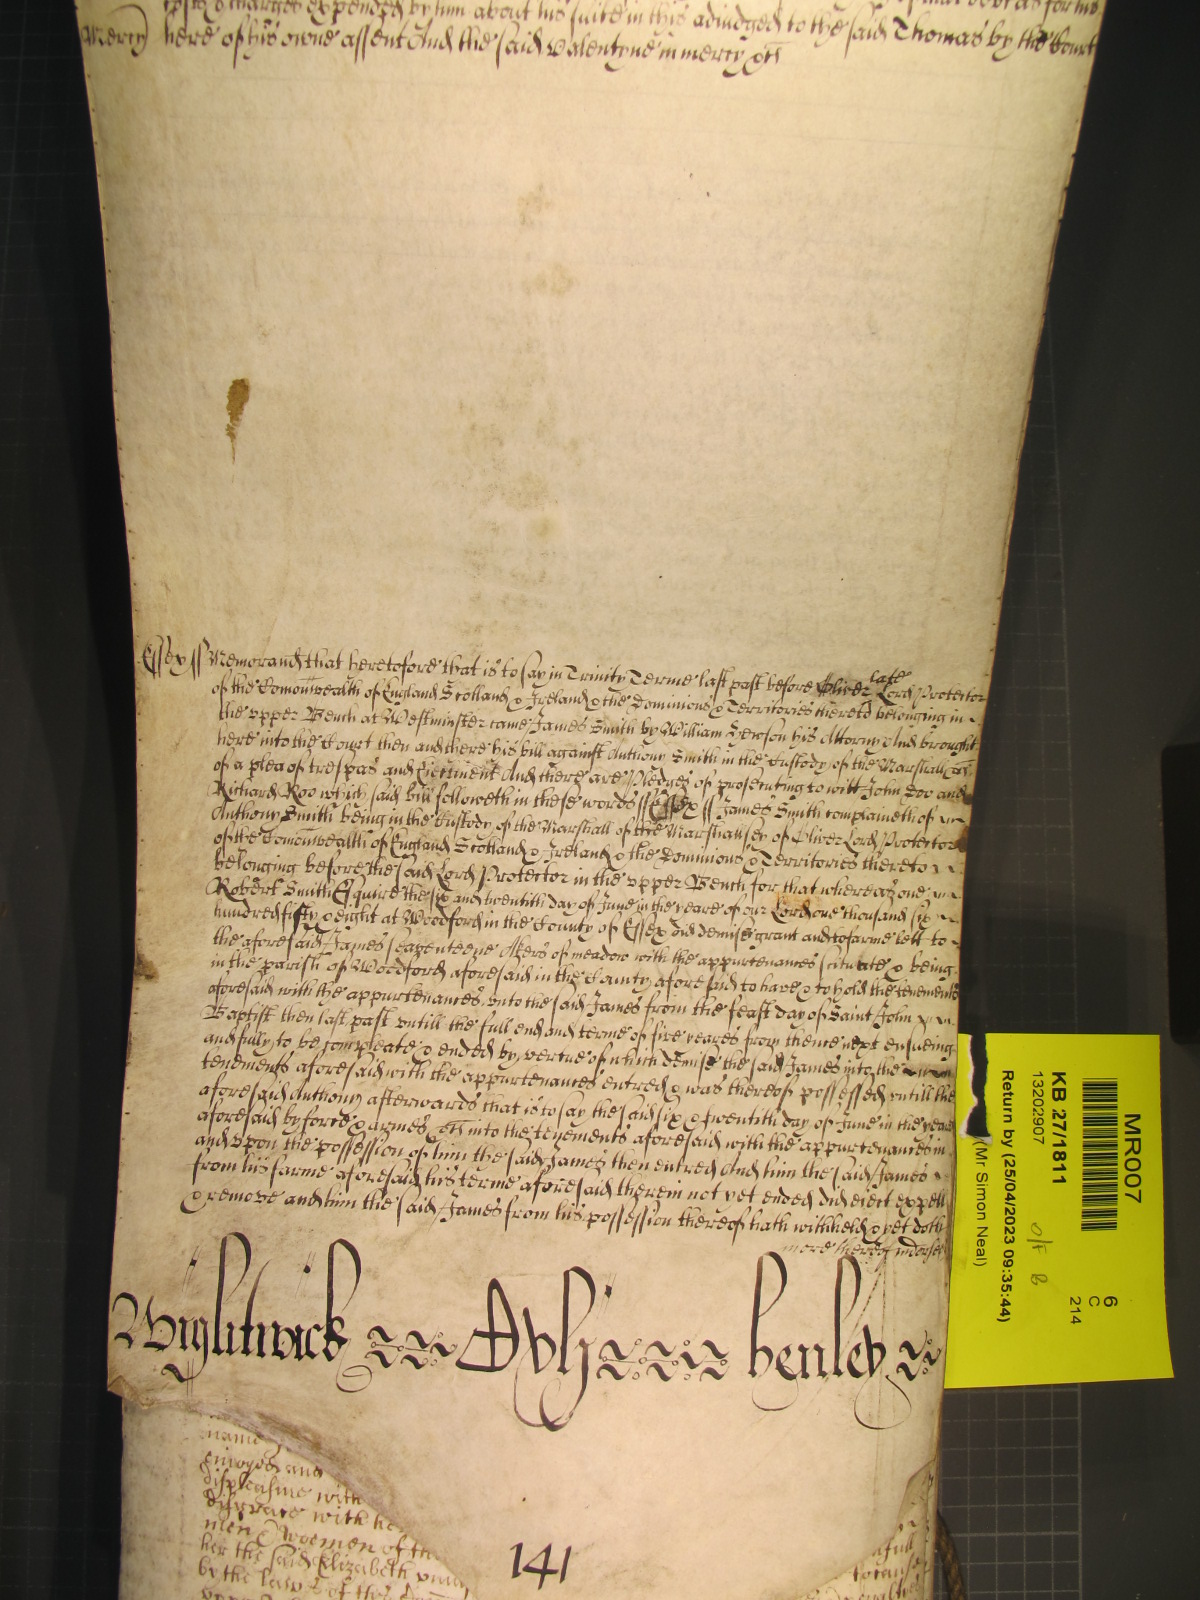 costs & charges expended by him about his suite in this adiudged to the said Thomas by the Court
Mercy here of his owne assent And the said Valentyne in mercy &c
Essex ss Memorand that heretofore that is to say in Trinity Terme last past before Oliver late Lord Protector
of the Comonwealth of England Scotland & Ireland & the Dominions & Territories thereto belonging in
the upper Bench at Westminster came James Smith by William his Attorny And brought
here into the Court then and there his bill against Anthony Smith in the Custody of the Marshall &c
of a plea of trespas and Eiectment And there are Pledges of prosecuting to witt John Doo and
Richard Roo which said bill followeth in these words ss Essex ss James Smith complaineth of
Anthony Smith being in the Custody of the Marshall of the Marshallsey of Oliver Lord Protector
of the Comonwealth of England Scotland & Ireland & the Dominions & Territories thereto
belonging before the said Lord Protector in the upper Bench for that whereas one
Robert Smith Esquire the six and twentith day of June in the yeare of our Lord one thousand six
hundred fifty & eight at Woodford in the County of Essex did demise grant and to farme lett to
the aforesaid James seaventeene Acres of meadow with the appurtenances scituate & being
in the parish of Woodford aforesaid in the County aforesaid to have & to hold the tenements
aforesaid with the appurtenances unto the said James from the feast day of Saint John
Baptist then last past untill the full end and terme of five yeares from thence next ensueing
and fully to be compleate & ended by vertue of which demise the said James into the
tenements aforesaid with the appurtenances entred & was thereof possessed untill the
aforesaid Anthony afterwards that is to say the said six & twentith day of June in the yeare
aforesaid by force & armes &c into the tenements aforesaid with the appurtenances in
and upon the possession of him the said James then entred And him the said James
from his farme aforesaid his terme aforesaid therein not yet ended did eiect expell
& remove and him the said James from his possession thereof hath withheld & yet doth
more thereof indorsed
Wightwick Ovh henley
name
enioyed and
displeasure with
disgrace with her
men & women of the
her the said Elizabeth
by the laws of the
141
MR007
KB 27/1811
13202907
Return by (25/04/2023 09:35:44)
(Mr Simon Neal)
6
C
214
O/F B